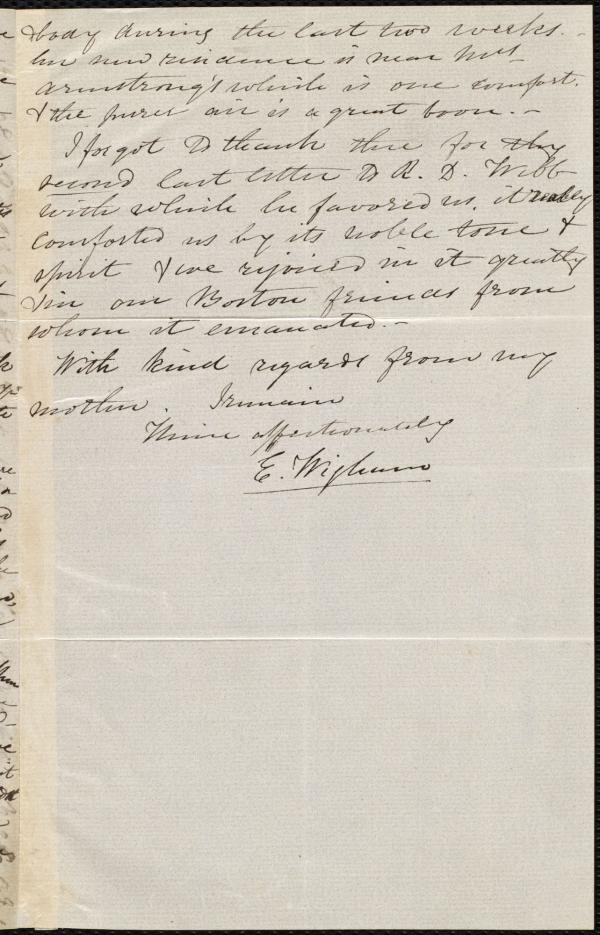 & body during the last two weeks. -
Our new residence is near Mrs
Armstrong's which is one comfort.
& the purer air is a great boon. -
I forgot to thank thee for thy
second last letter to R. D. Webb
with which he favored us, it really
comforted us by its noble tone &
spirit & we rejoiced in it greatly
& in our Boston friends from
whom it emanated. -
With kind regards from my
mother. I remain
Thine affectionately
E. Wigham